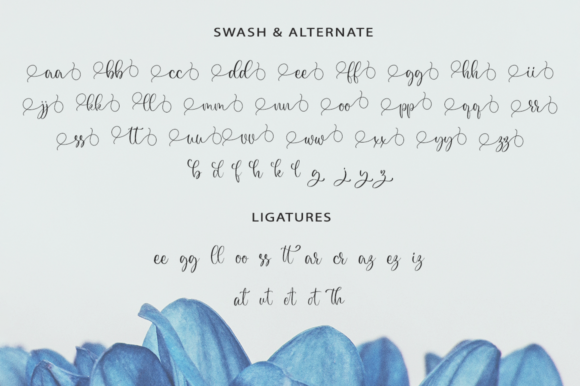 SWASH & ALTERNATE
aa bb cc dd ee ff gg hh ii
jj kk ll mm nn oo pp qq rr
ss tt uu vv ww xx yy zz
b d f h k l g j y z
LIGATURES
ee gg ll oo ss tt ar cr az ez iz
at ut et ot Th